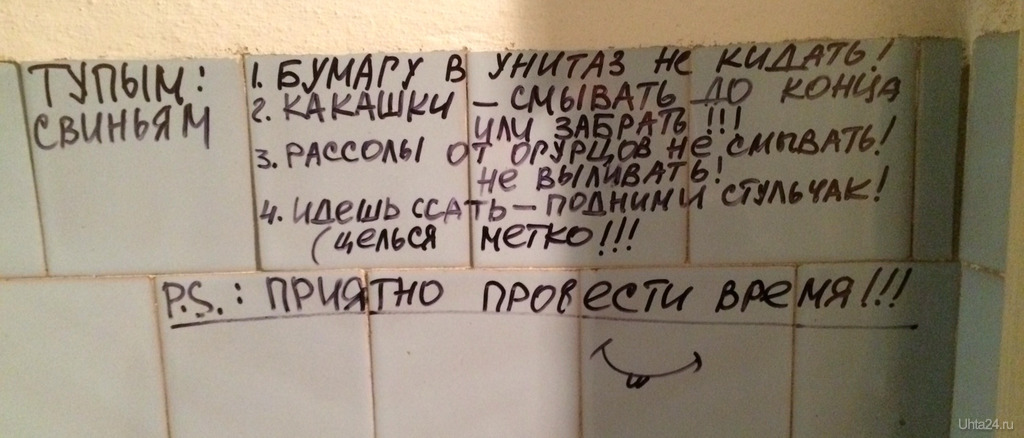 ТУПЫМ:
СВИНЬЯМ
1. БУМАГУ В УНИТАЗ НЕ КИДАТЬ!
2. КАКАШКИ – СМЫВАТЬ ДО КОНЦА
ИЛИ ЗАБРАТЬ!!!
3. РАССОЛЫ ОТ ОГУРЦОВ НЕ СМЫВАТЬ!
НЕ ВЫЛИВАТЬ!
4. ИДЕШЬ ССАТЬ – ПОДНИМИ СТУЛЬЧАК!
(ЦЕЛЬСЯ МЕТКО!!!
P.S.: ПРИЯТНО ПРОВЕСТИ ВРЕМЯ!!!
Uhta24.ru